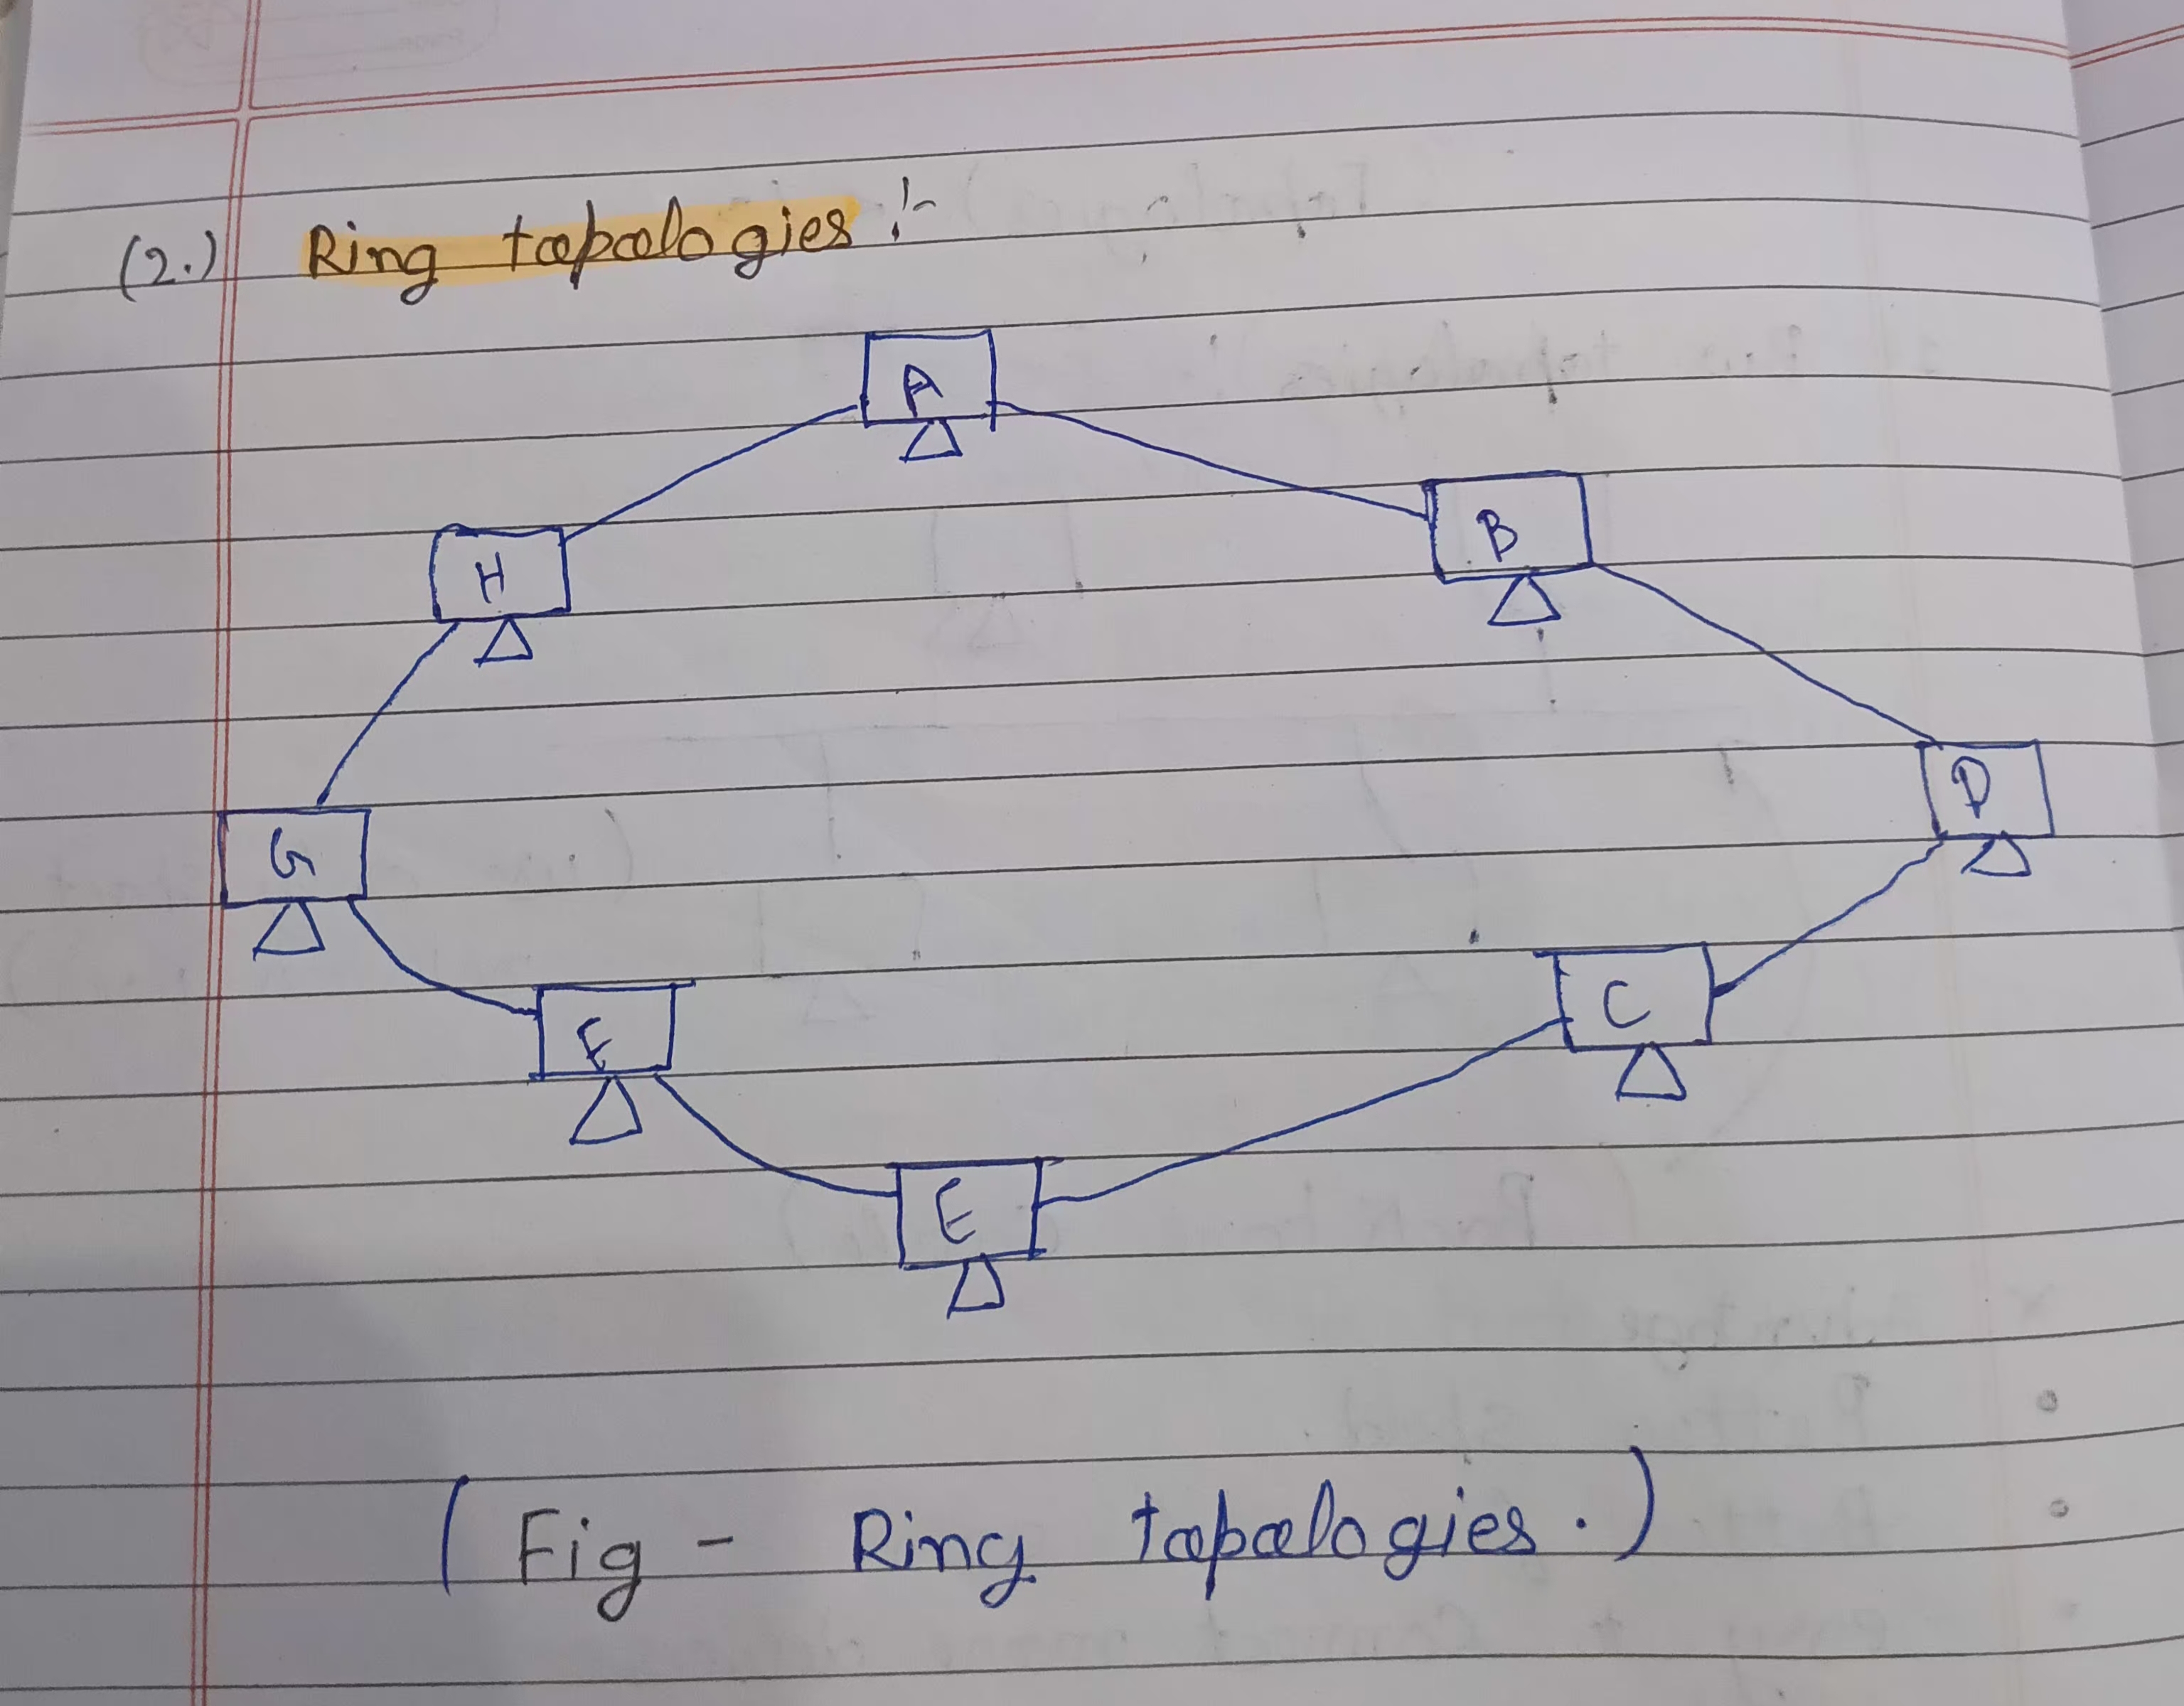 (2.) Ring topologies :-
A
H B
G D
F C
E
( Fig - Ring topologies . )